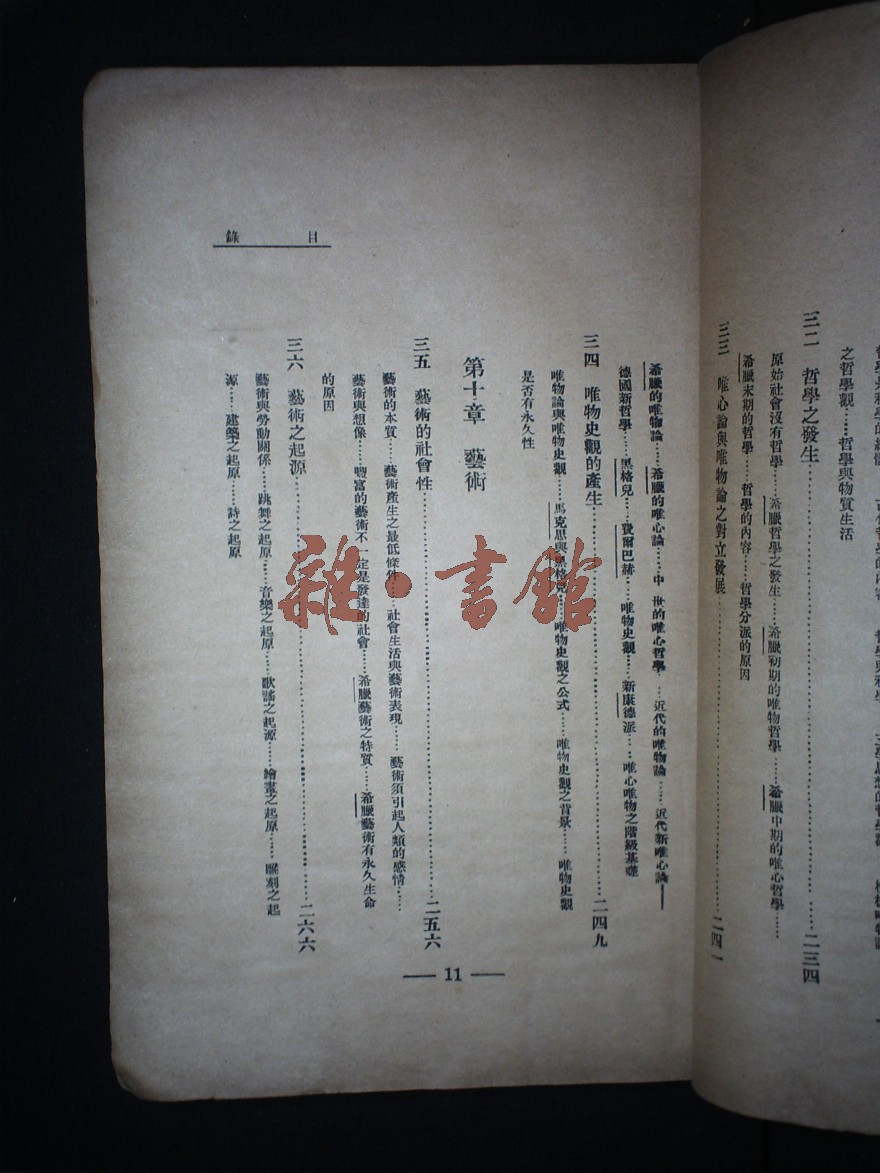 之哲學觀……哲學與物質生活
三二 哲學之發生……二三四
原始社會沒有哲學……希臘哲學之發生……希臘初期的唯物哲學……希臘中期的唯心哲學……
希臘末期的哲學……哲學的內容……哲學分派的原因
三三 唯心論與唯物論之對立發展……二四一
目錄
希臘的唯物論……希臘的唯心論……中世的唯心哲學……近代的唯物論……近代新唯心論——
德國新哲學……黑格兒……費爾巴赫……唯物史觀……新康德派……唯心唯物之階級基礎
三四 唯物史觀的產生……二四九
唯物論與唯物史觀……馬克思與黑格兒……唯物史觀之公式……唯物史觀之背景……唯物史觀
是否有永久性
第十章 藝術
三五 藝術的社會性……二五六
藝術的本質……藝術產生之最低條件……社會生活與藝術表現……藝術須引起人類的感情……
藝術與想像……豐富的藝術不一定是發達的社會……希臘藝術之特質……希臘藝術有永久生命
的原因
三六 藝術之起源……二六六
藝術與勞動關係……跳舞之起原……音樂之起原……歌謠之起源……繪畫之起原……雕刻之起
源……建築之起原……詩之起原
— 11 —
雜·書館